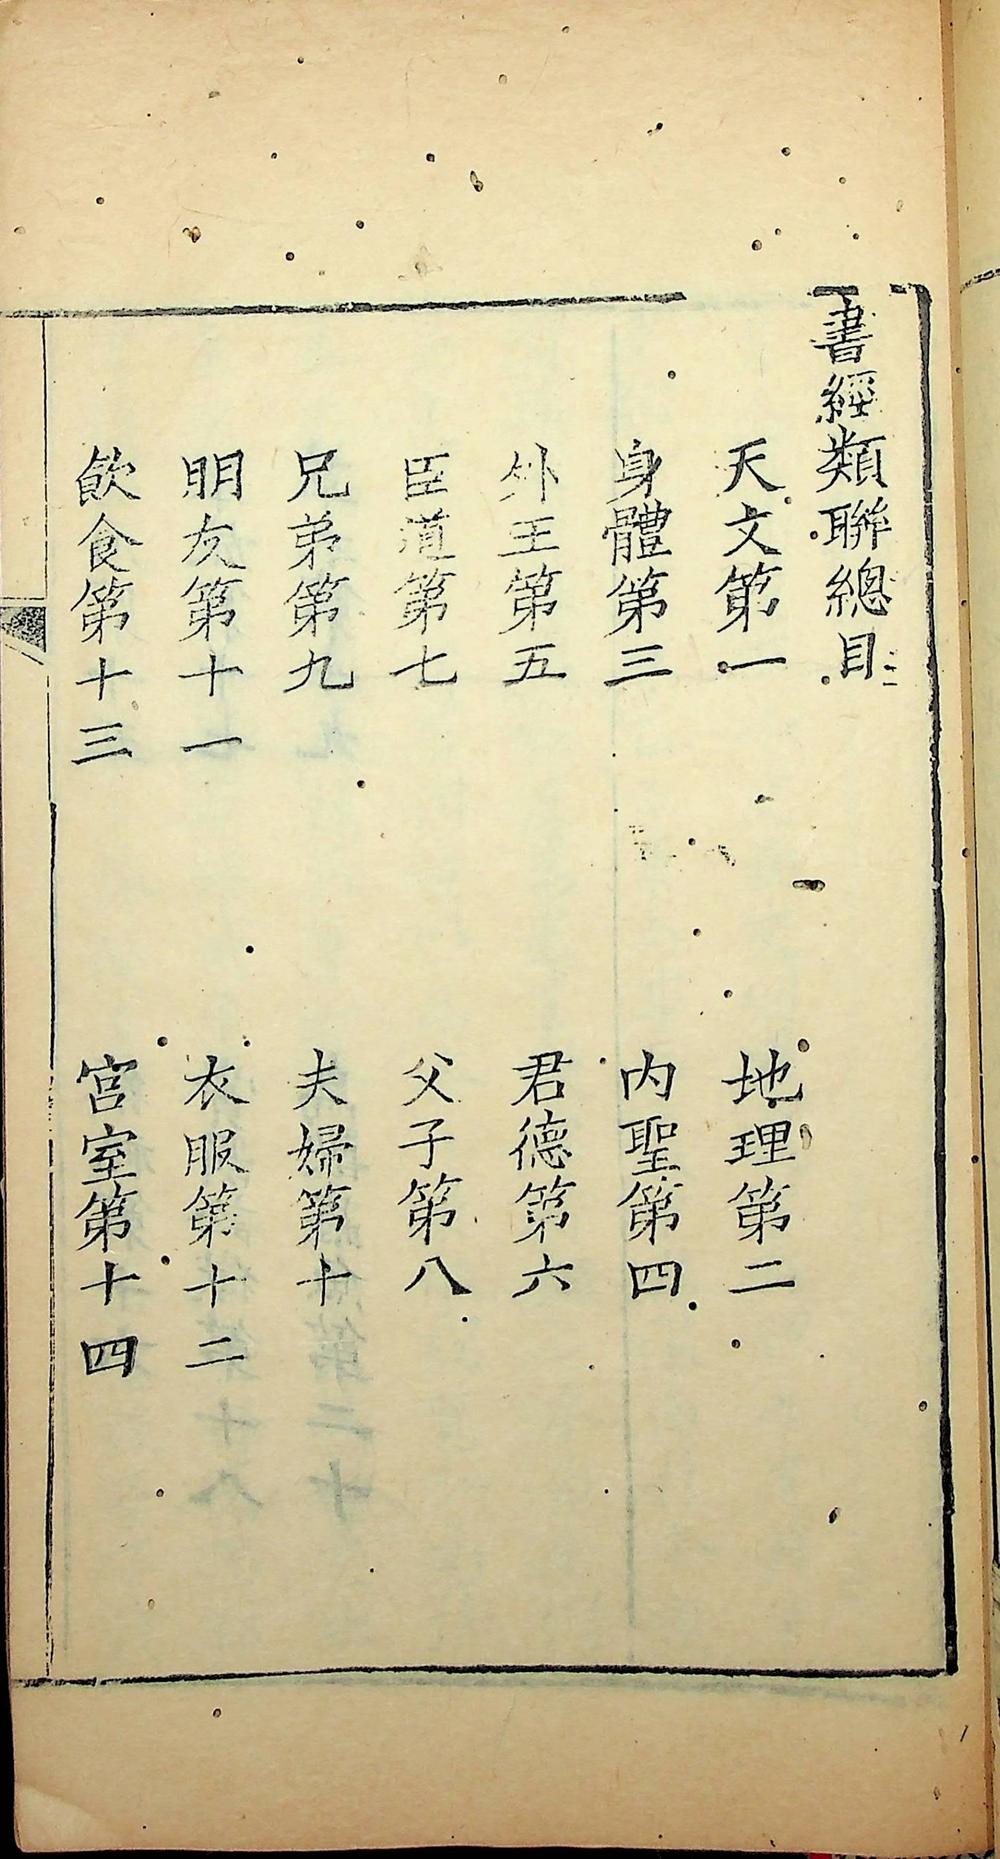 書經類聯總目
天文第一　地理第二
身體第三　内聖第四
外王第五　君德第六
臣道第七　父子第八
兄弟第九　夫婦第十
明友第十一　衣服第十二
飲食第十三　宮室第十四